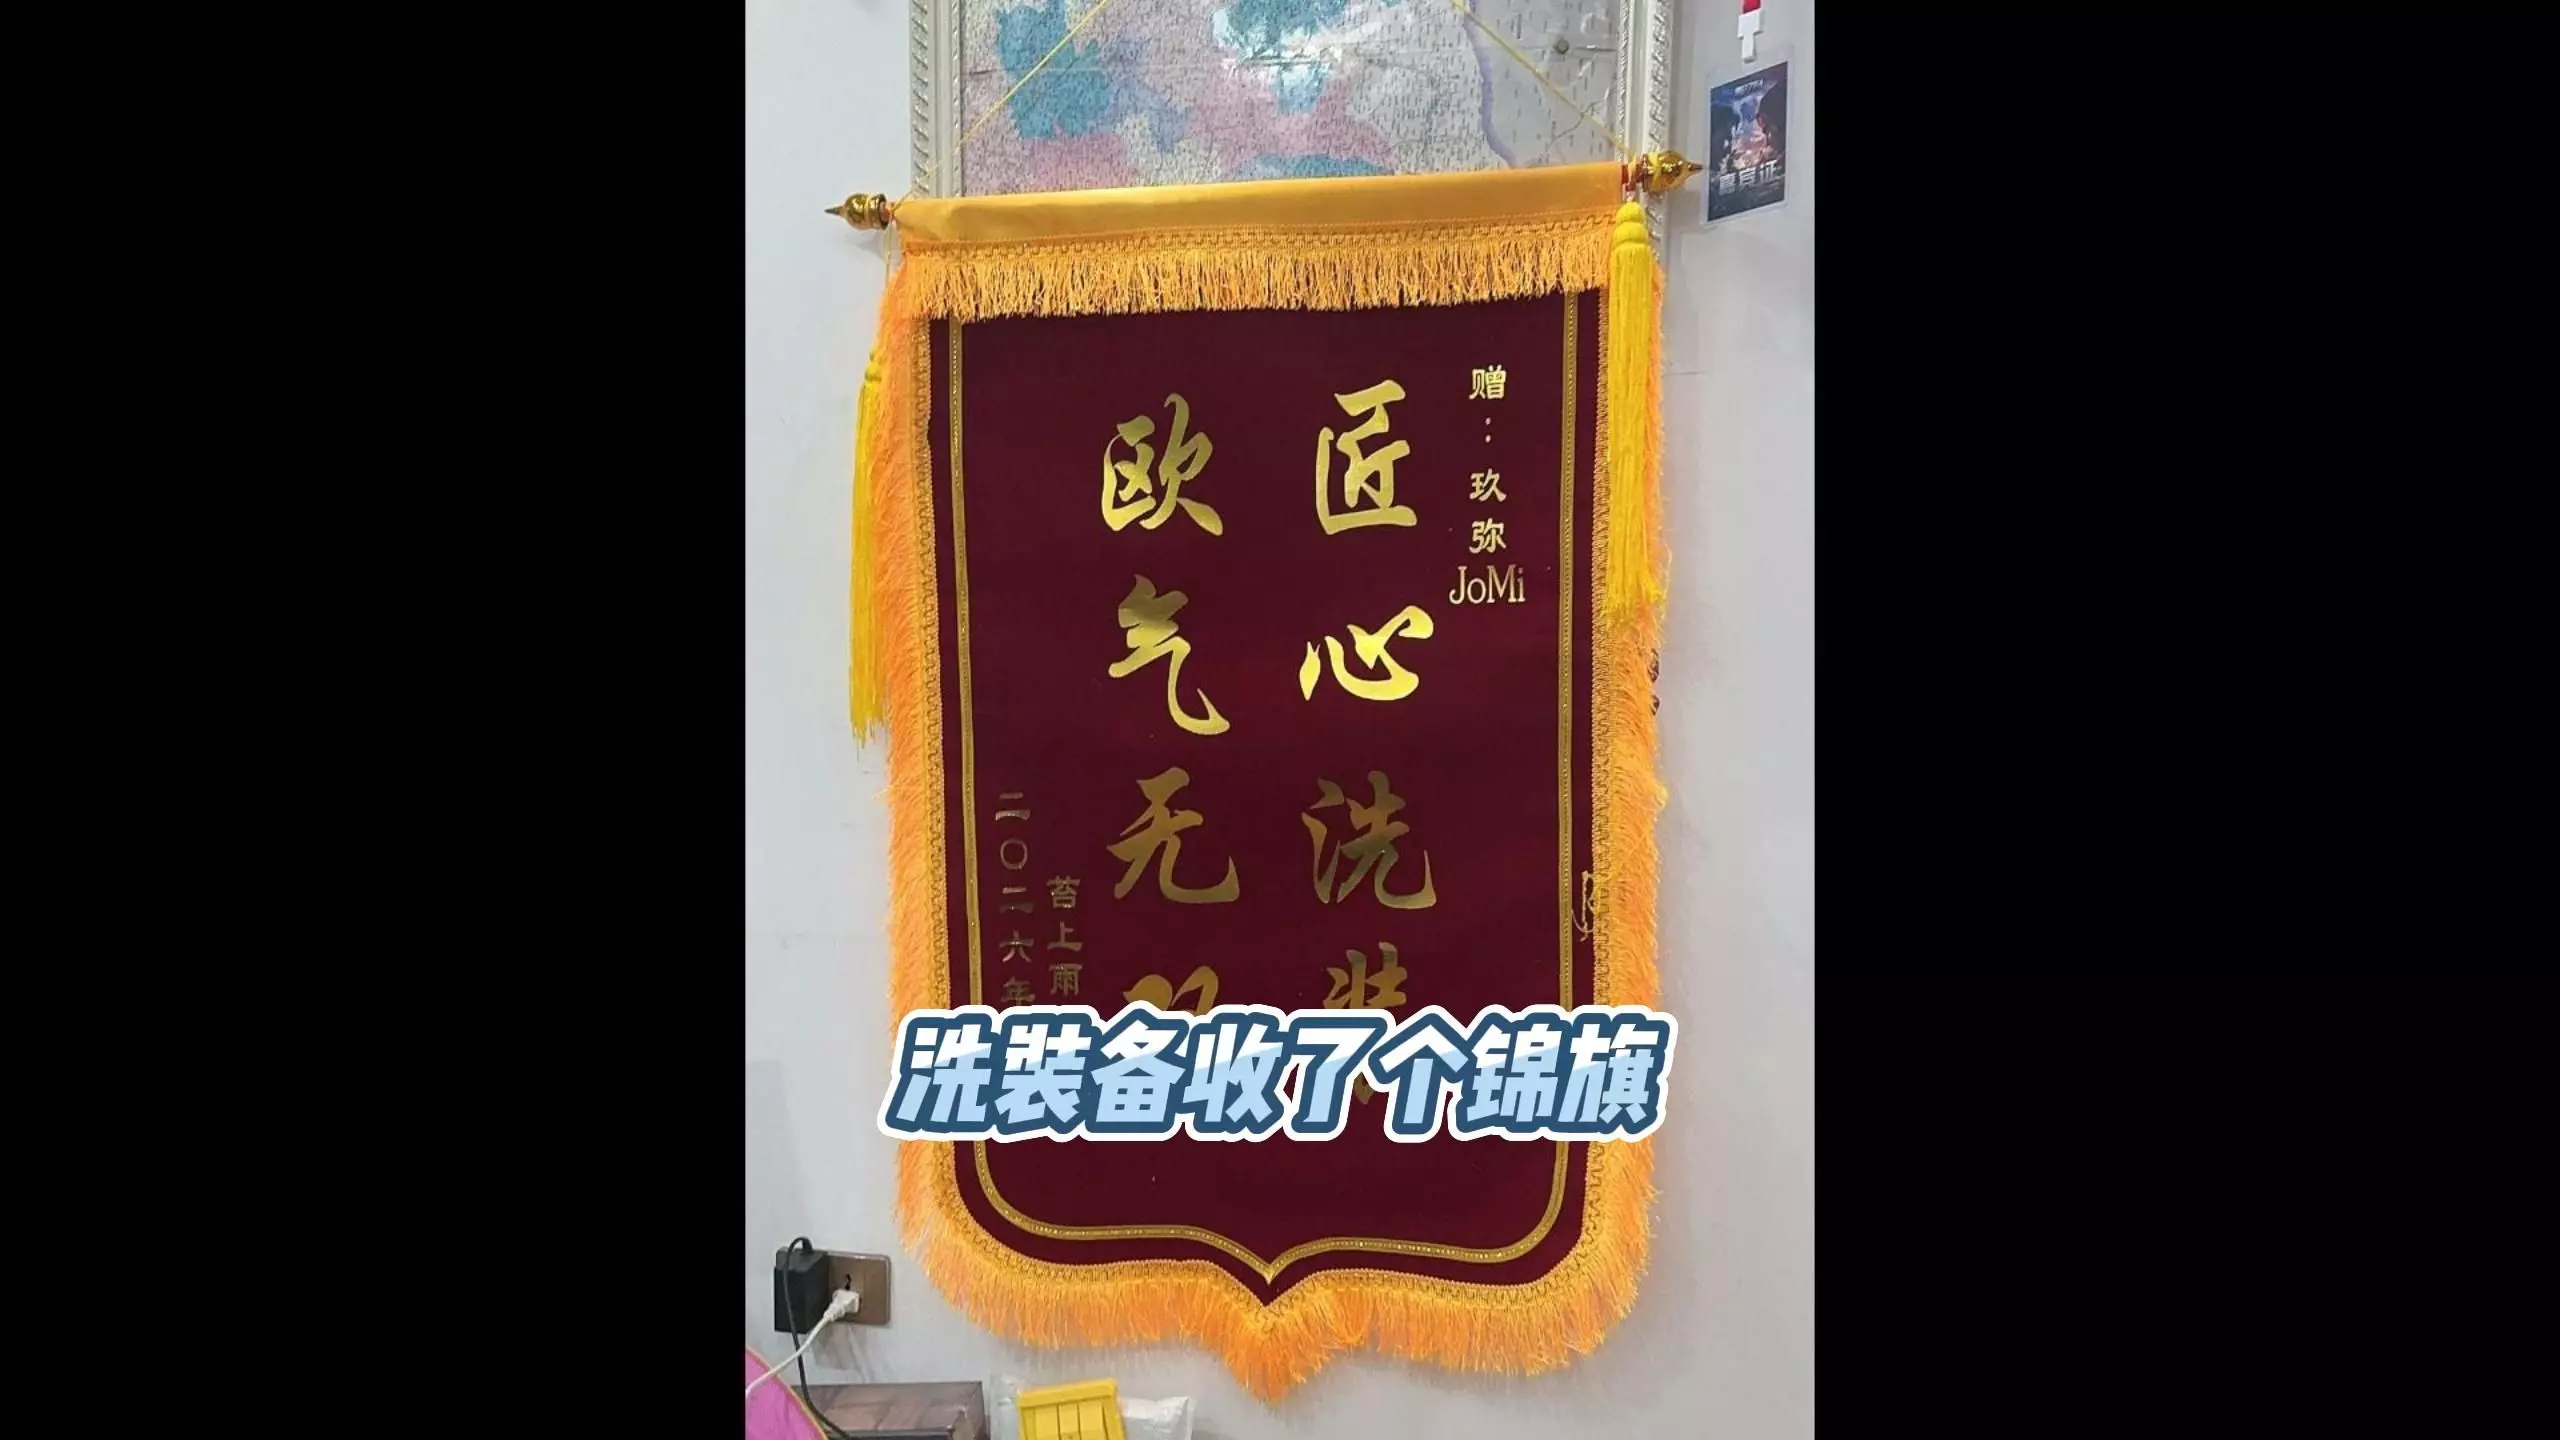 赠：玖弥JoMi
匠心洗装
欧气无双
苔上雨
二〇二六年
洗装备收了个锦旗
嘉宾证